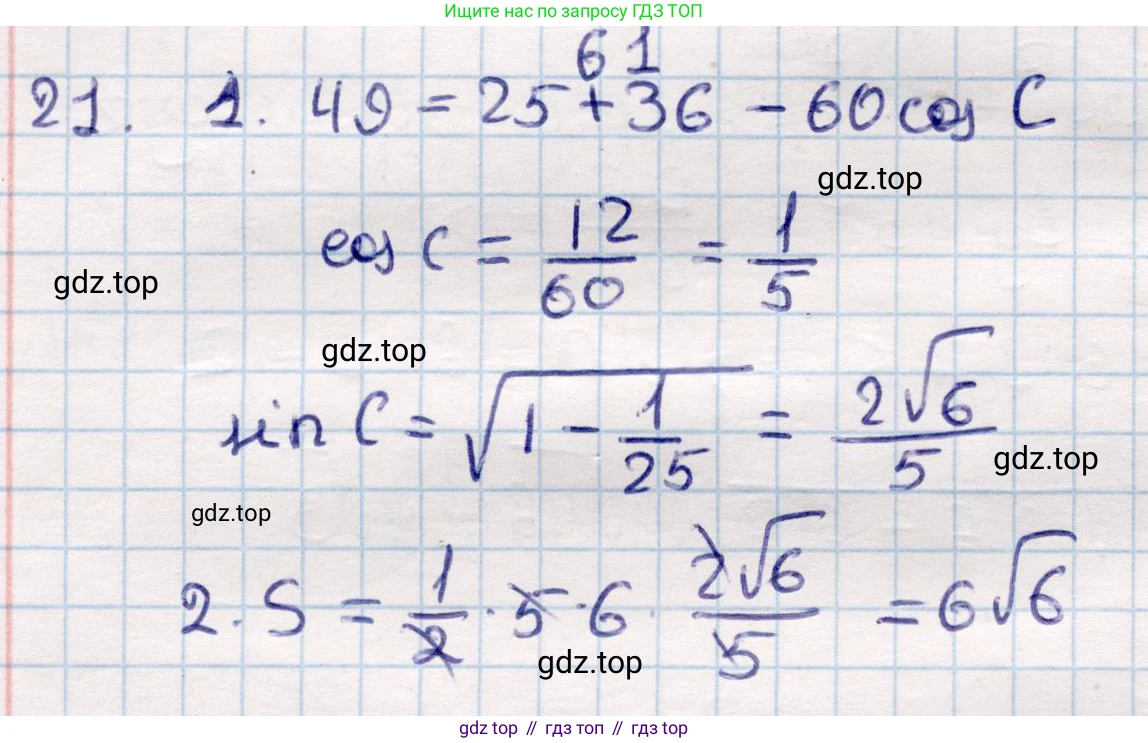 Ищите нас по запросу ГДЗ ТОП
6 1
21. 1. 49 = 25 + 36 - 60 cos C
gdz.top
cos C = 12/60 = 1/5
gdz.top
gdz.top
sin C = √(1 - 1/25) = 2√6/5
gdz.top
gdz.top
2. S = 1/2 · 5 · 6 · 2√6/5 = 6√6
gdz.top
gdz top // гдз топ // gdz top